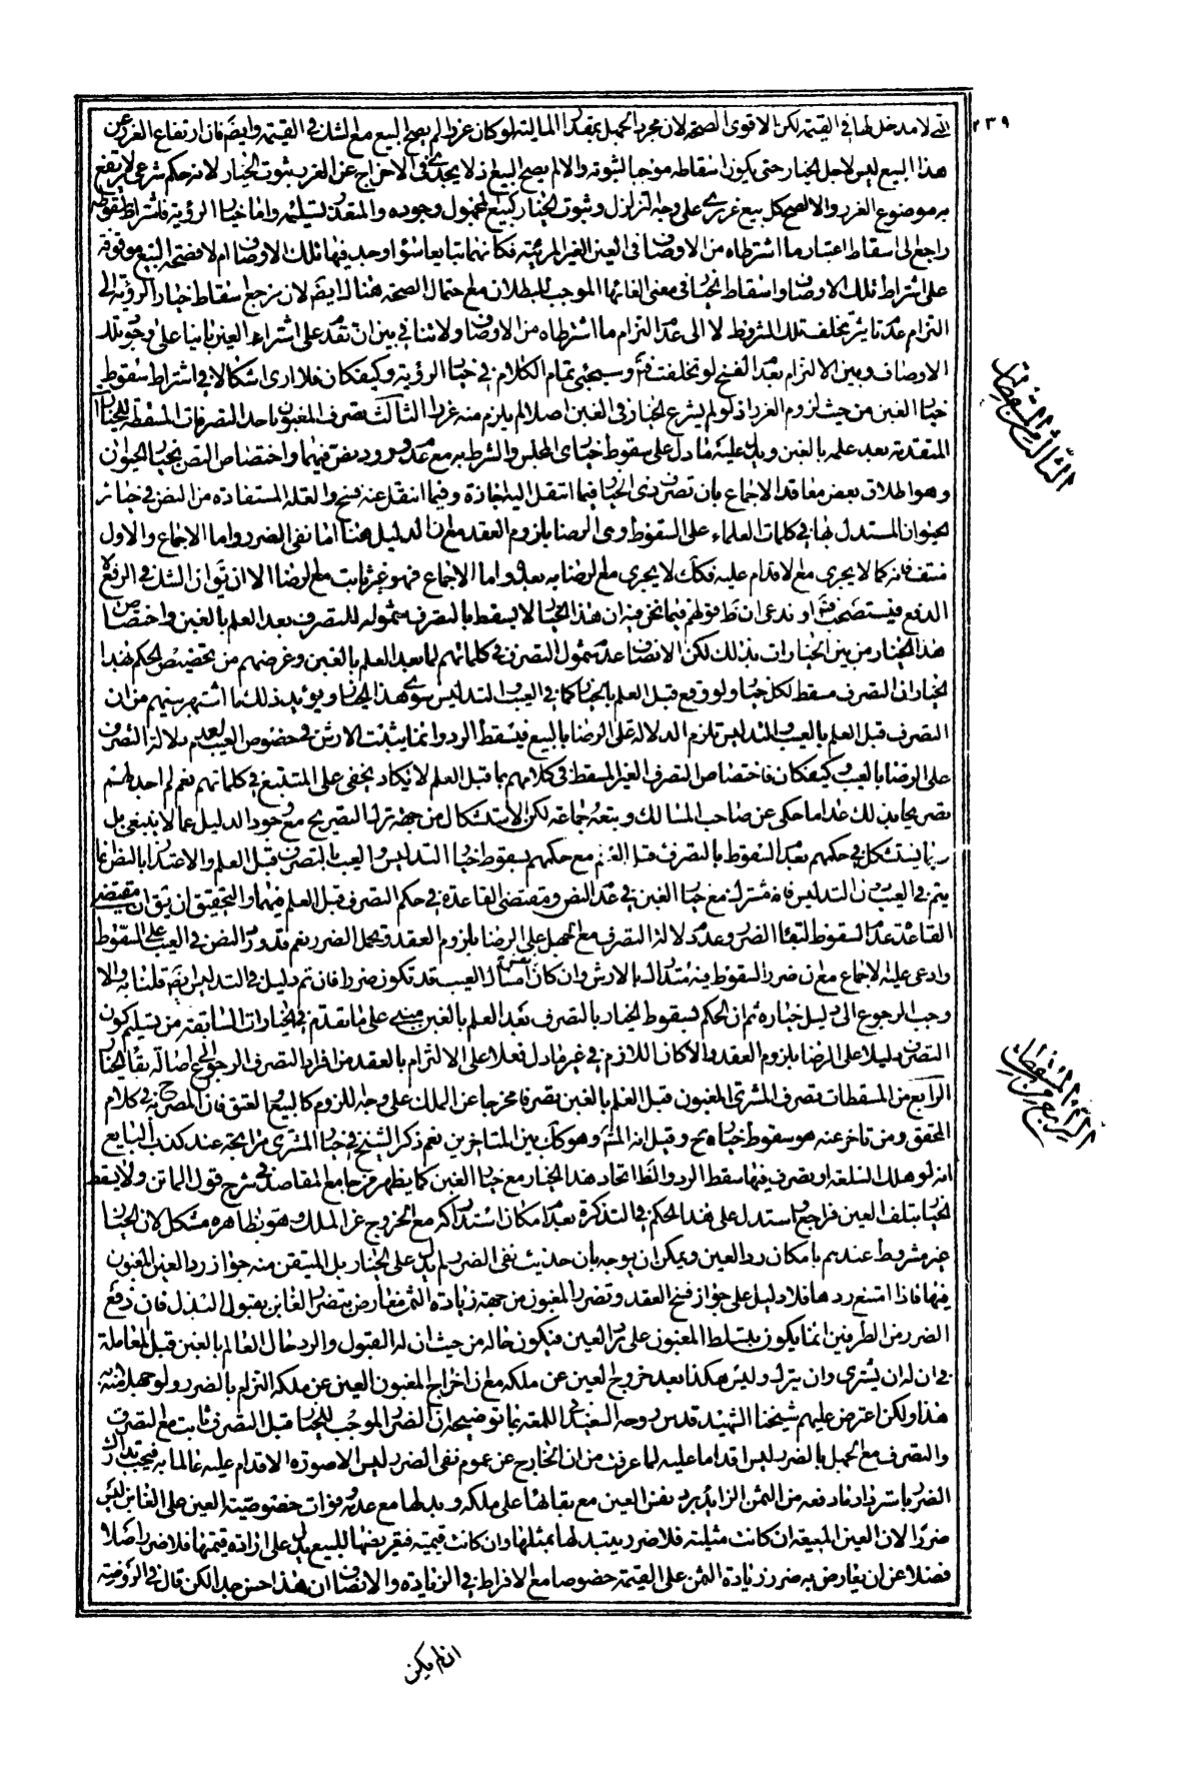 ٢٣٩
التي لا مدخل لها في القيمة لكن الاقوى الصحة لان مجرد الجهل بمقدار المالية لو كان غررا لم يصح البيع مع الشك في القيمة وايضَ فان ارتفاع الغرر عن
هذا البيع ليس لاجل الخيار حتى يكون اسقاطه موجبا لثبوته والا لم يصح البيع اذ لا يجدى في الاخراج عن الغرر ثبوت الخيار لانه حكم شرعي لا يرتفع
به موضوع الغرر والا لصح كل بيع غررى على وجه التزلزل وثبوت الخيار كبيع المجهول وجوده والمتعذر تسليمه واما خيار الرؤية فاشتراط سقوطه
راجع الى اسقاط اعتبار ما اشترطاه من الاوصاف في العين الغير المرئية فكانهما تبايعا سواء وجد فيها تلك الاوصاف ام لا فصحة البيع موقوفة
على اشتراط تلك الاوصاف واسقاط الخيار في معنى الغائها الموجب للبطلان مع احتمال الصحة هناك ايضَ لان مرجع اسقاط خيار الرؤية الى
التزام عدم تاثير تخلف تلك الشروط لا الى عدم التزام ما اشترطاه من الاوصاف ولا تنافي بين ان تقدم على اشتراء العين بانيا على وجود تلك
الاوصاف وبين الالتزام بعدم الفسخ لو تخلفت فتَم وسيجئ تمام الكلام في خيار الرؤية وكيفكان فلا ارى اشكالا في اشتراط سقوط
خيار الغبن من حيث لزوم الغرر اذ لو لم يشرع الخيار في الغبن اصلا لم يلزم منه غرر الثالث تصرف المغبون باحد التصرفات المسقطة للخيارات
المتقدمة بعد علمه بالغبن ويدل عليه ما دل على سقوط خيارى المجلس والشرط به مع عدم ورود نص فيهما واختصاص النص بخيار الحيوان
وهو اطلاق بعض معاقد الاجماع بان تصرف ذى الخيار فيما انتقل اليه اجازة وفيما انتقل عنه فسخ والعلة المستفادة من النص في خيار
الحيوان المستدل بها في كلمات العلماء على السقوط وهى الرضا بلزوم العقد مع ان الدليل هنا اما نفى الضرر واما الاجماع والاول
منتف فانه كما لا يجرى مع الاقدام عليه فكك لا يجرى مع الرضا به بعده واما الاجماع فهو غير ثابت مع الرضا الا ان يَق ان الشك في الرفع لا
الدفع فيستصحب فتَم او ندعى ان ظَ قولهم فيما نحن فيه ان هذا الخيار لا يسقط بالتصرف شموله للتصرف بعد العلم بالغبن واختصاص
هذا الخيار من بين الخيارات بذلك لكن الانصاف عدم شمول التصرف في كلماتهم لما بعد العلم بالغبن وغرضهم من تخصيص الحكم بهذا
الخيار ان التصرف مسقط لكل خيار ولو وقع قبل العلم بالخيار كما في العيب والتدليس سوى هذا الخيار ويؤيد ذلك ما اشتهر بينهم من ان
التصرف قبل العلم بالعيب والتدليس ملزم الدلالة على الرضا بالبيع فيسقط الرد وانما يثبت الارش في خصوص العيب لعدم دلالة التصرف
على الرضا بالعيب وكيفكان فاختصاص التصرف الغير المسقط في كلامهم بما قبل العلم لا يكاد يخفى على المتتبع في كلماتهم نعم لم اجد لهم
تصريحا بذلك عدا ما حكى عن صاحب المسالك وتبعه جماعة لكن الاستشكال من جهة ترك التصريح مع وجود الدليل عما لا ينبغي بل
ربما يستشكل في حكمهم بعدم السقوط بالتصرف قبل العلم مع حكمهم بسقوط خيار التدليس والعيب بالتصرف قبل العلم والاعتذار بالنص انما
يتم في العيب دون التدليس فانه مشترك مع خيار الغبن في عدم النص ومقتضى القاعدة في حكم التصرف قبل العلم فيهما والتحقيق ان يَق ان مقتضى
القاعدة عدم السقوط لبقاء الضرر وعدم دلالة التصرف مع الجهل على الرضا بلزوم العقد وتحمل الضرر نعم قد ورد النص في العيب على السقوط
وادعى عليه الاجماع مع ان ضرر السقوط فيه متدارك بالارش وان كان نفس امساك العيب قد تكون ضررا فان تم دليل في التدليس ايضَ قلنا به والا
وجب الرجوع الى دليل خياره ثم ان الحكم بسقوط الخيار بالتصرف بعد العلم بالغبن مبنى على ما تقدم في الخيارات السابقة من تسليم كون
التصرف دليلا على الرضا بلزوم العقد والا كان اللازم في غير ما دل فعلا على الالتزام بالعقد من افراد التصرف الرجوع الى اصالة بقاء الخيار
الرابع من المسقطات تصرف المشترى المغبون قبل العلم بالغبن تصرفا مخرجا عن الملك على وجه اللزوم كالبيع والعتق فان المصرح به في كلام
المحقق ومن تاخر عنه هو سقوط خياره ح وقيل انه المشَ وهو كك بين المتاخرين نعم ذكر الشيخ في خيار المشترى مرابحة عند كذب البايع
انه لو هلك السلعة او تصرف فيها سقط الرد والظَ اتحاد هذا الخيار مع خيار الغبن كما يظهر من جامع المقاصد في شرح قول الماتن ولا يسقط
الخيار بتلف العين فراجع واستدل على هذا الحكم في التذكرة بعدم امكان استدراكه مع الخروج عن الملك وهو بظاهره مشكل لان الخيار
غير مشروط عندهم بامكان رد العين ويمكن ان يوجه بان حديث نفى الضرر لم يدل على الخيار بل المتيقن منه جواز رد العين المغبون
فيها فاذا امتنع ردها فلا دليل على جواز فسخ العقد وتضرر المغبون من جهة زيادة الثمن معارض بتضرر الغابن بقبول البدل فان دفع
الضرر من الطرفين انما يكون بتسلط المغبون على رد العين فيكون حاله من حيث ان له القبول والرد حال العالم بالغبن قبل المعاملة
في ان له ان يشترى وان يترك وليس هكذا بعد خروج العين عن ملكه مع ان اخراج المغبون العين عن ملكه التزام بالضرر ولو جهلا منه
هذا ولكن اعترض عليهم شيخنا الشهيد قدس روحه السعيد في اللمعة بما توضيحه ان الضرر الموجب للخيار قبل التصرف ثابت مع التصرف
والتصرف مع الجهل بالضرر ليس اقداما عليه لما عرفت من ان الخارج عن عموم نفى الضرر ليس الا صورة الاقدام عليه عالما به فيجب تدارك
الضرر باسترداد ما دفعه من الثمن الزائد برد نفس العين مع بقائها على ملكه وبدلها مع عدمه وفوات خصوصية العين على الغابن ليس
ضررا لان العين المبيعة ان كانت مثلية فلا ضرر بتبدلها بمثلها وان كانت قيمية فتعريضها للبيع يدل على ارادة قيمتها فلا ضرر اصلا
فضلا عن ان يعارض به ضرر زيادة الثمن على القيمة خصوصا مع الافراط في الزيادة والانصاف ان هذا حسن جدا لكن قال في الروضة
ان لم يكن
الثالث من المسقطات
الرابع من المسقطات